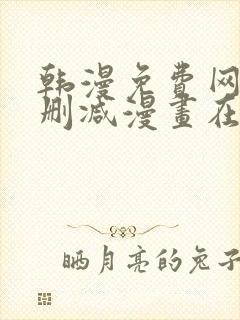 韩漫免费网
删减漫畫在
晒月亮的兔子